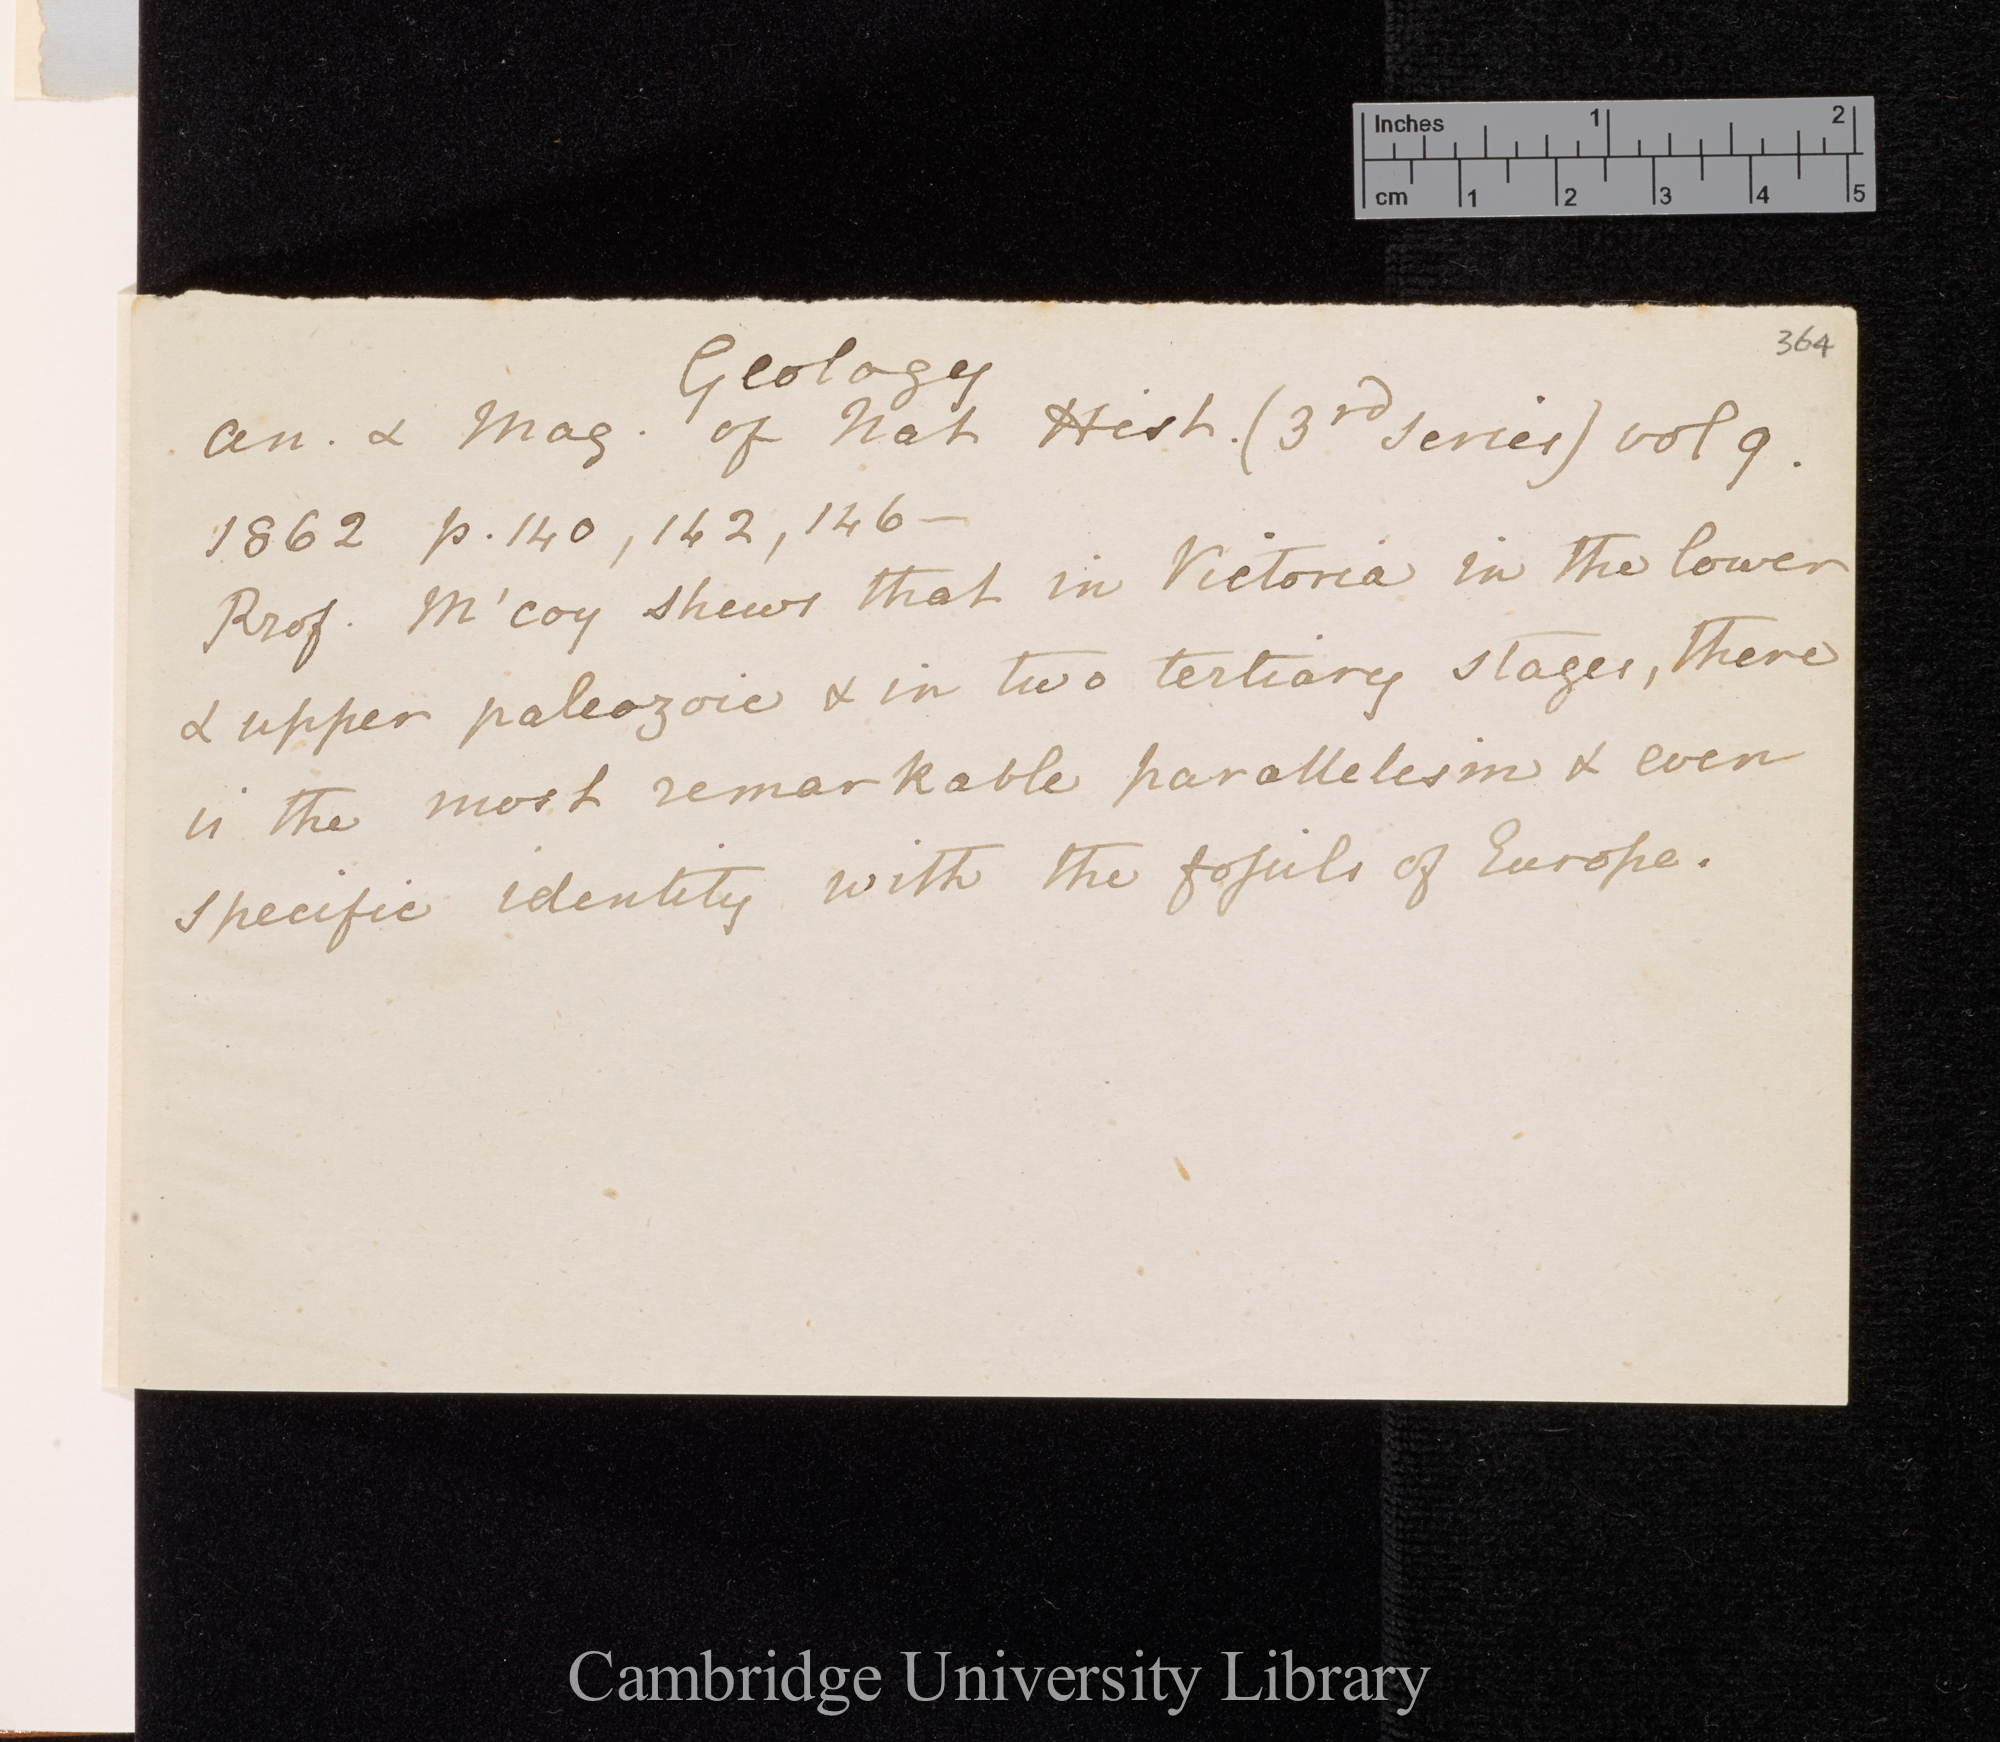 Inches 1 2
cm 1 2 3 4 5
364
Geology
An. & Mag. of Nat Hist. (3rd series) vol 9.
1862 p. 140, 142, 146 –
Prof. M'coy shews that in Victoria in the lower
& upper paleozoic & in two tertiary stages, there
is the most remarkable parallelesim & even
specific identity with the fossils of Europe.
Cambridge University Library